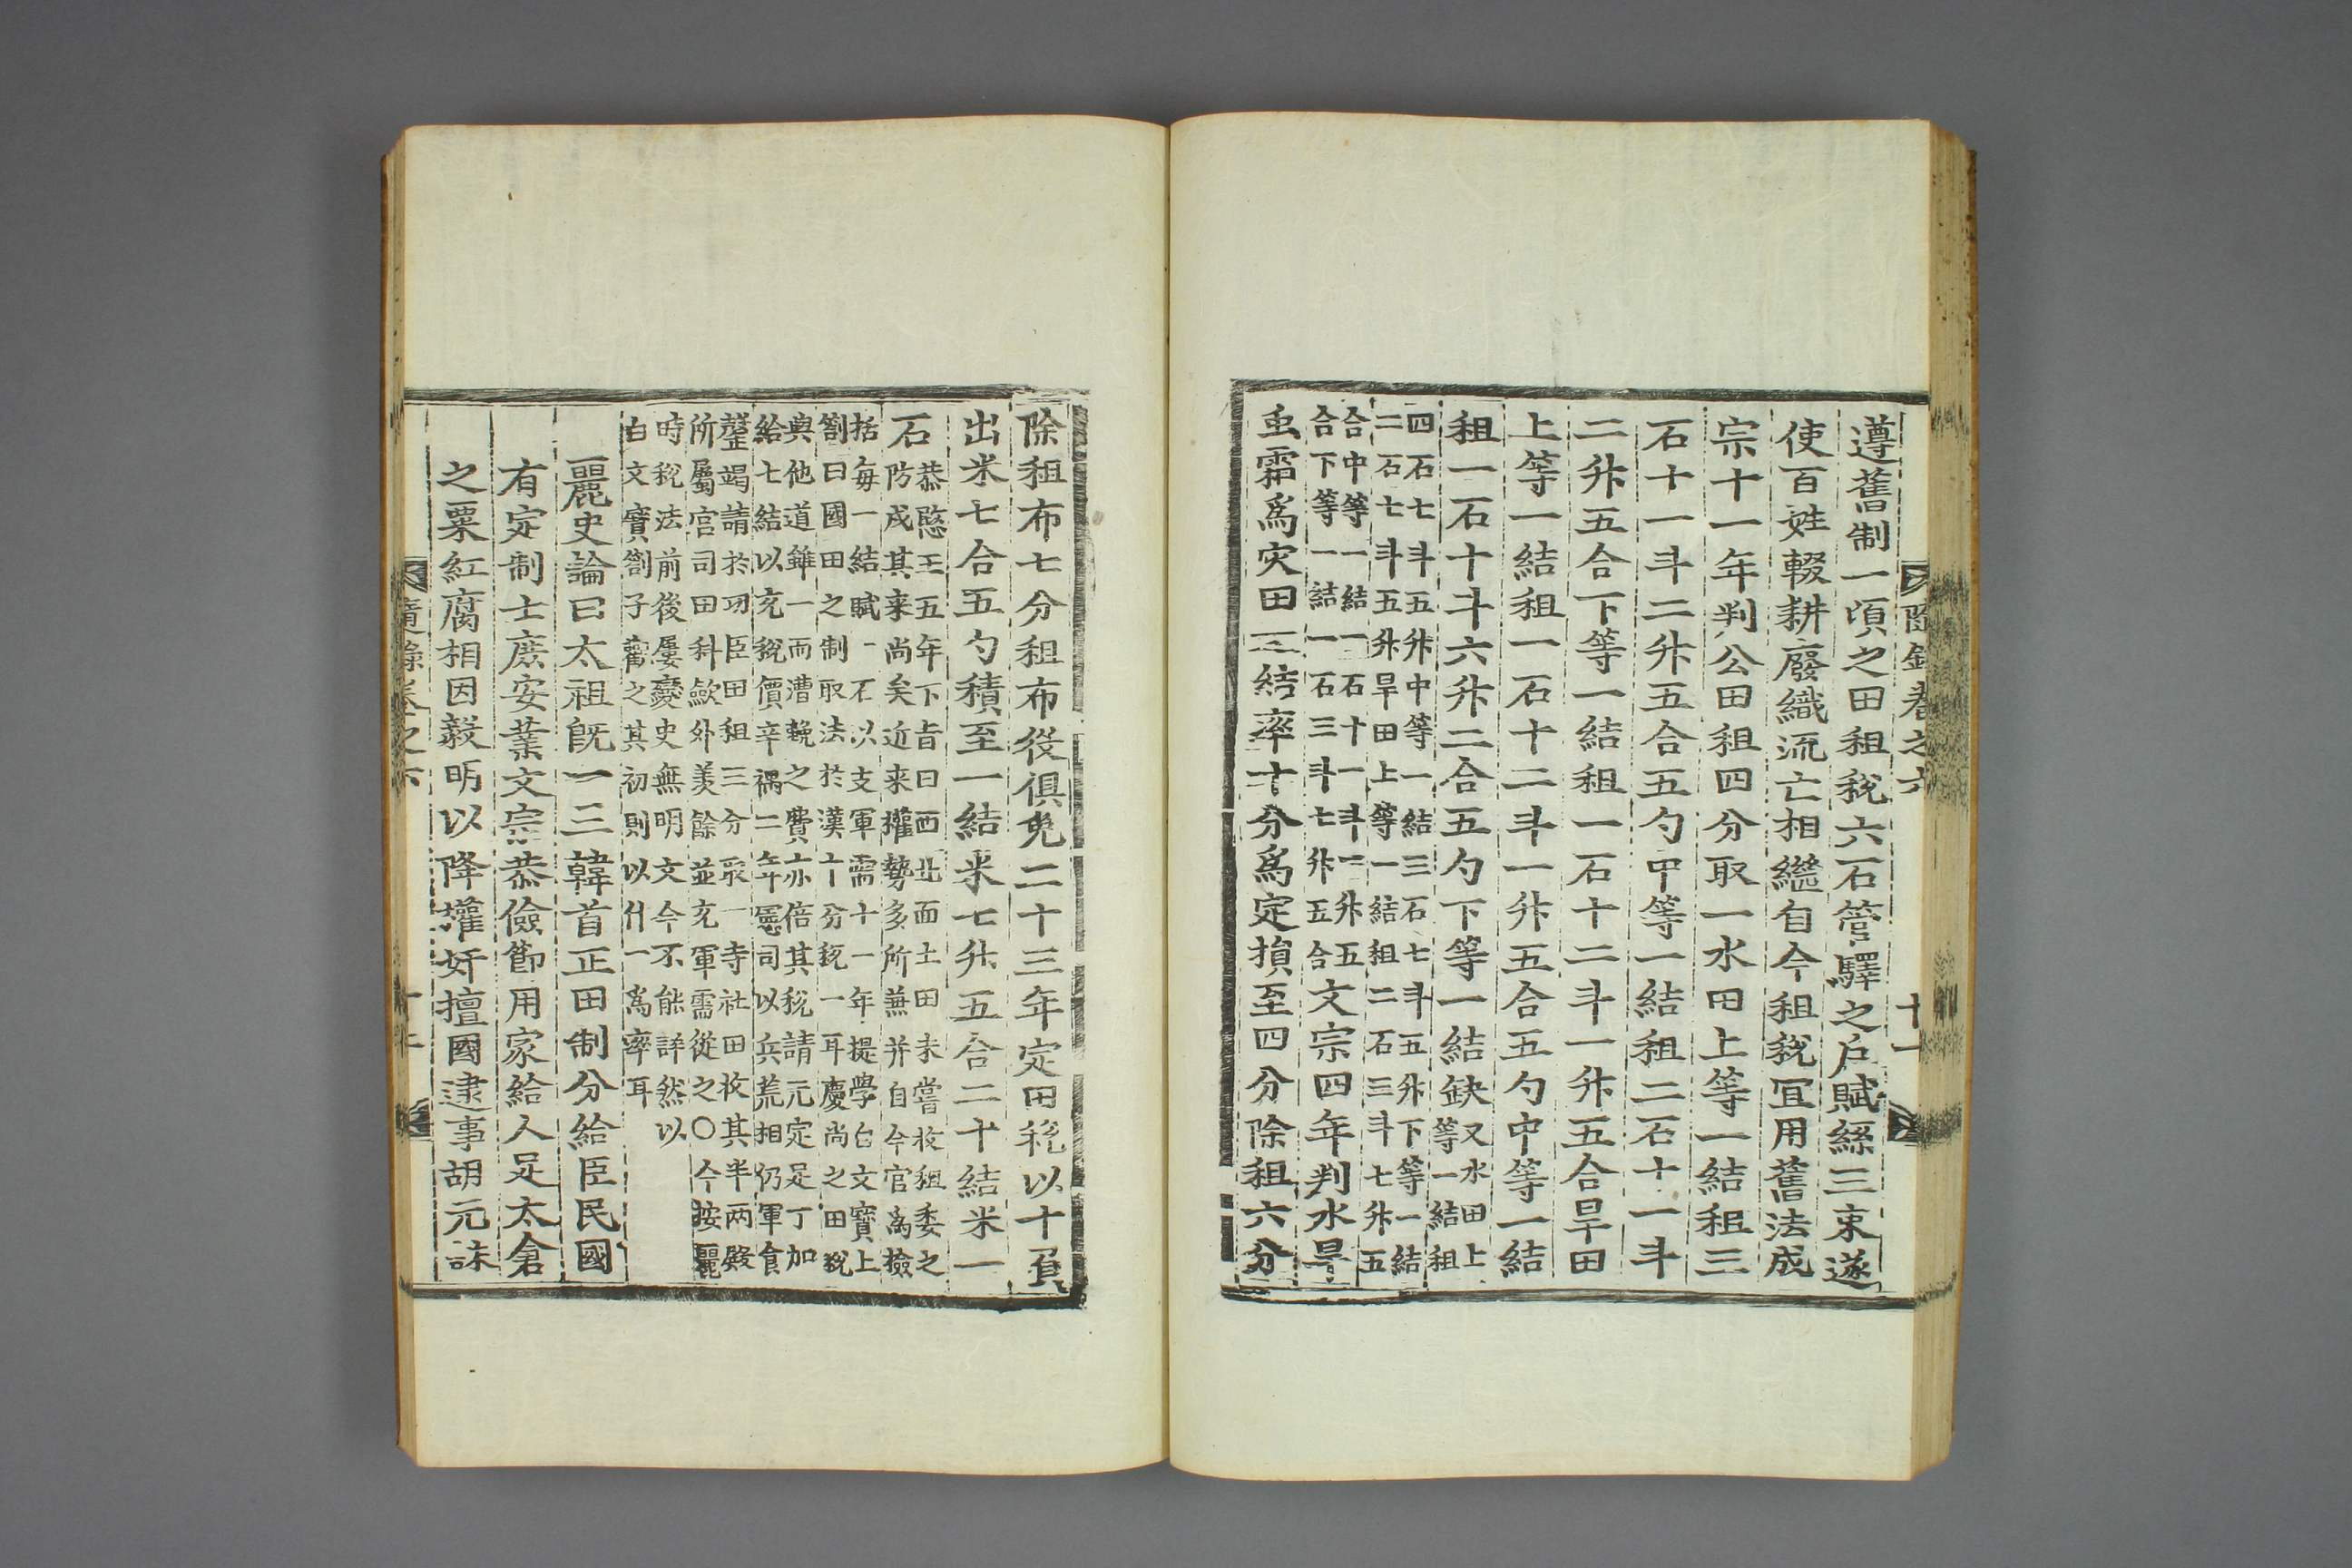 遵舊制一頃之田租稅六石管驛之戶賦絲三束遂
使百姓輟耕廢織流亡相繼自今租稅冝用舊法成
宗十一年判公田租四分取一水田上等一結租三
石十一斗二升五合五勺中等一結租二石十一斗
二升五合下等一結租一石十二斗一升五合旱田
上等一結租一石十二斗一升五合五勺中等一結
租一石十斗六升二合五勺下等一結缺又水田上
等一結租
四石七斗五升中等一結三石七斗五升下等一結
二石七斗五升旱田上等一結租二石三斗七升五
合中等一結一石十一斗二升五
合下等一結一石三斗七升五合文宗四年判水旱
䖝霜爲灾田一結率十分爲定損至四分除租六分
除租布七分租布役俱免二十三年定田稅以十負
出米七合五勺積至一結米七升五合二十結米一
石恭愍王五年下旨曰西北面土田未嘗收租委之
防戍其来尚矣近来權勢多所兼并自今官爲檢
括每一結賦一石以支軍需十一年提學白文寶上
劄曰國田之制取法於漢十分稅一耳慶尚之田稅
與他道雖一而漕輓之費亦倍其稅請元定足丁加
給七結以充稅價辛禑二年憲司以兵荒相仍軍食
罄竭請於功臣田租三分取一寺社田收其半兩殿
所屬宮司田科斂外羡餘並充軍需從之○今按麗
時稅法前後屢變史無明文今不能詳然以
白文寶劄子觀之其初則以什一爲率耳
麗史論曰太祖旣一三韓首正田制分給臣民國
有定制士庶安業文宗恭儉節用家給人足太倉
之粟紅腐相因毅明以降權奸擅國逮事胡元誅
隨錄卷之六
十一